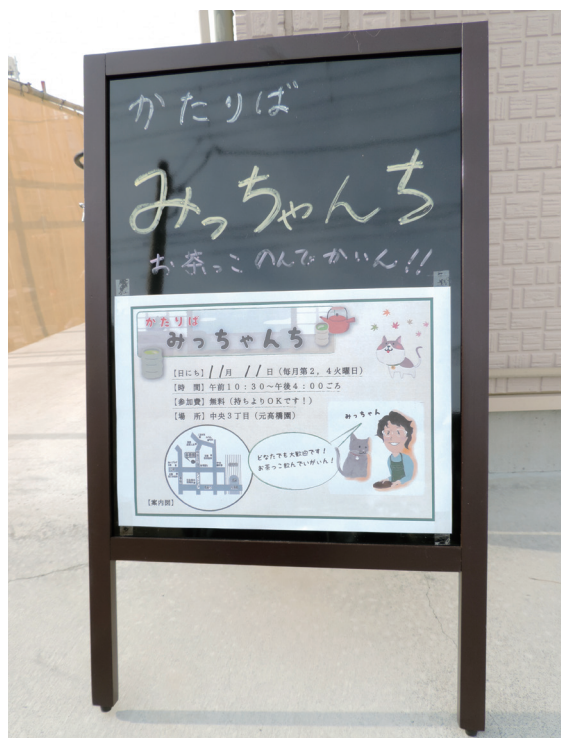 かたりば
みっちゃんち
お茶っこ のんでかいん!!
かたりば
みっちゃんち
【日にち】11月 11日(毎月第2,4火曜日)
【時 間】午前10:30~午後4:00ごろ
【参加費】無料(持ちよりOKです!)
【場 所】中央3丁目(元高橋園)
みっちゃん
どなたでも大歓迎です!
お茶っこ飲んでいがいん!
【案内図】